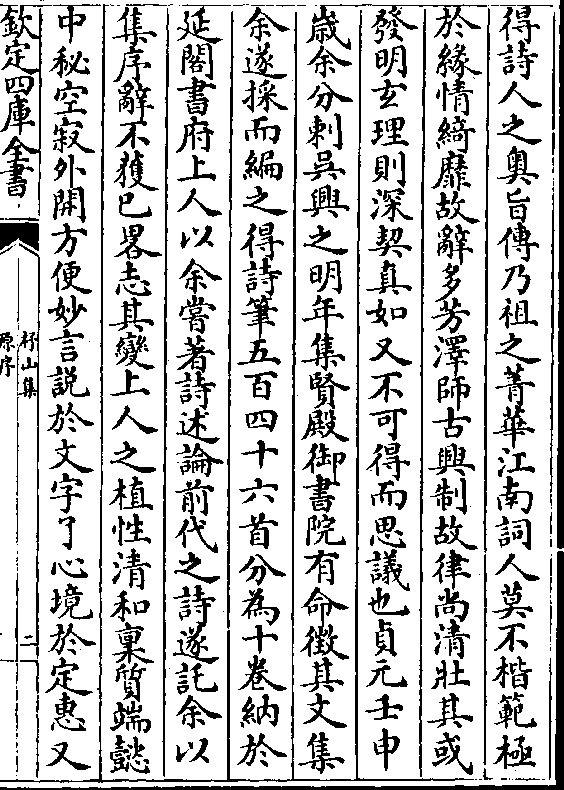 得詩人之奥旨傳乃祖之菁華江南詞人莫不楷範極
於緣情綺靡故辭多芳澤師古興制故律尚清壯其或
發明玄理則深契真如又不可得而思議也貞元壬申
嵗余分刺吳興之明年集賢殿御書院有命徴其文集
余遂採而編之得詩筆五百四十六首分為十卷納於
延閣書府上人以余嘗著詩述論前代之詩遂託余以
集序辭不獲已畧志其變上人之植性清和稟質端懿
中秘空寂外開方便妙言説於文字了心境於定惠又
欽定四庫全書
杼山集
原序
二